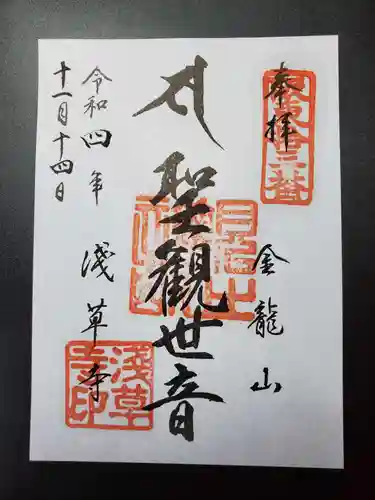 奉拝
坂東十三番
金龍山
聖観世音
淺草寺
淺草寺印
令和四年
十一月十四日